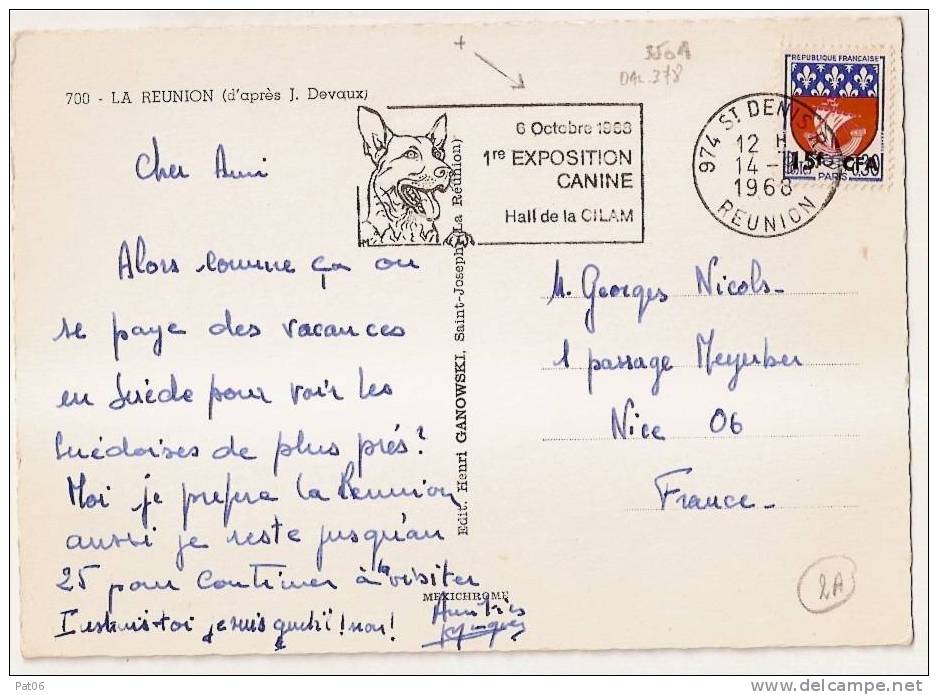 350A
DAL.378
700 - LA REUNION (d'après J. Devaux)
6 Octobre 1968
1re EXPOSITION
CANINE
Hall de la CILAM
974 ST DENIS
12 H
14 -
1968
REUNION
REPUBLIQUE FRANÇAISE
15f CFA
0,30
PARIS
Cher Ami
Alors comme ça on
se paye des vacances
en Suède pour voir les
Suédoises de plus près?
Moi je prefere la Reunion
aussi je reste jusqu'au
25 pour continuer à la visiter
je suis ! non!
Amitiés
Jacques
Edit. Henri GANOWSKI, Saint-Joseph (La Réunion)
MEXICHROME
M. Georges Nicols-
1 passage Meyerber
Nice 06
France-
2A
Pat06
delcampe.net